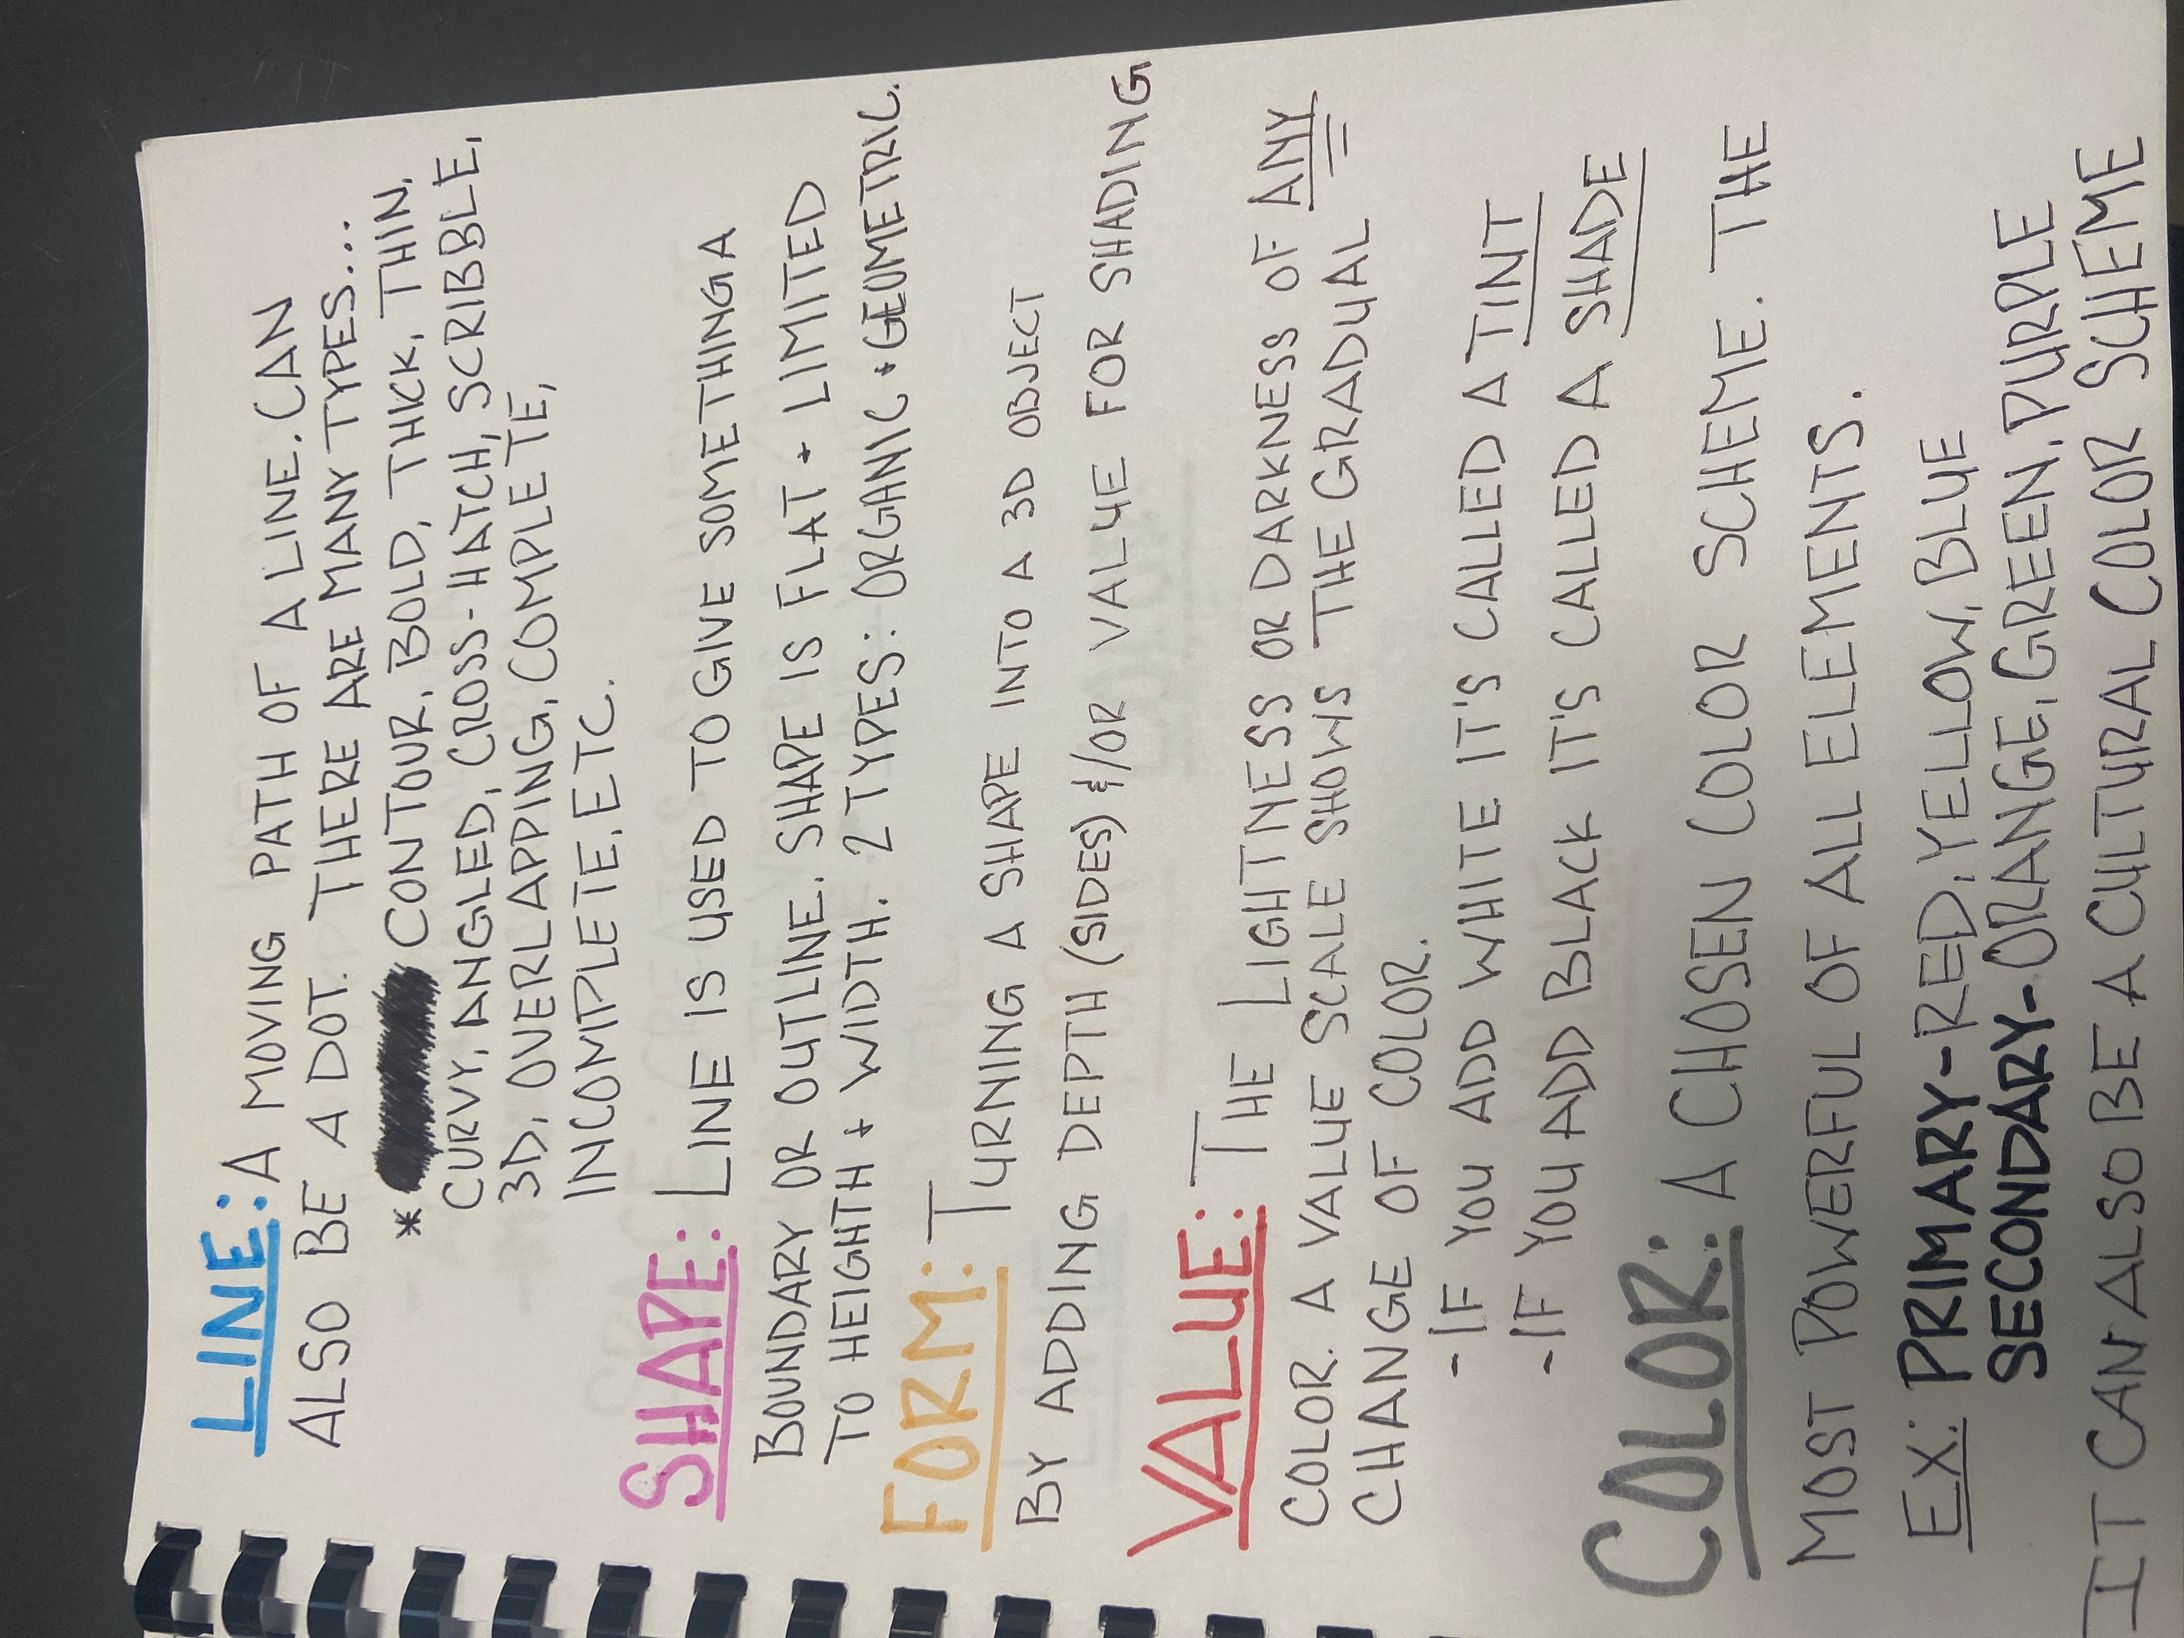 LINE: A MOVING PATH OF A LINE. CAN
ALSO BE A DOT. THERE ARE MANY TYPES...
* CONTOUR, BOLD, THICK, THIN,
CURVY, ANGLED, CROSS-HATCH, SCRIBBLE,
3D, OVERLAPPING, COMPLETE,
INCOMPLETE, ETC.
SHAPE: LINE IS USED TO GIVE SOMETHING A
BOUNDARY OR OUTLINE. SHAPE IS FLAT + LIMITED
TO HEIGHT + WIDTH. 2 TYPES: ORGANIC + GEOMETRIC.
FORM: TURNING A SHAPE INTO A 3D OBJECT
BY ADDING DEPTH (SIDES) &/OR VALUE FOR SHADING
VALUE: THE LIGHTNESS OR DARKNESS OF ANY
COLOR. A VALUE SCALE SHOWS THE GRADUAL
CHANGE OF COLOR.
- IF YOU ADD WHITE IT'S CALLED A TINT
- IF YOU ADD BLACK IT'S CALLED A SHADE
COLOR: A CHOSEN COLOR SCHEME. THE
MOST POWERFUL OF ALL ELEMENTS.
EX: PRIMARY-RED, YELLOW, BLUE
SECONDARY-ORANGE, GREEN, PURPLE
IT CAN ALSO BE A CULTURAL COLOR SCHEME